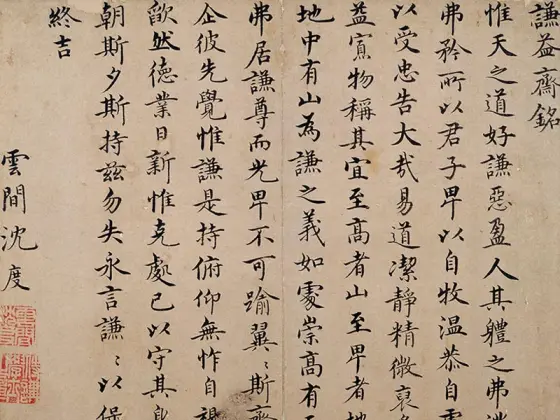 謙益齋銘
惟天之道好謙惡盈人其體之弗
弗矜所以君子卑以自牧溫恭自
以受忠告大哉易道潔靜精微裒
益寡物稱其宜至高者山至卑者
地中有山為謙之義如處崇高有
弗居謙尊而光卑不可踰翼〻斯
企彼先覺惟謙是持俯仰無怍自視
欿然德業日新惟克處己以守其
朝斯夕斯持茲勿失永言謙〻以保
終吉
雲間沈度